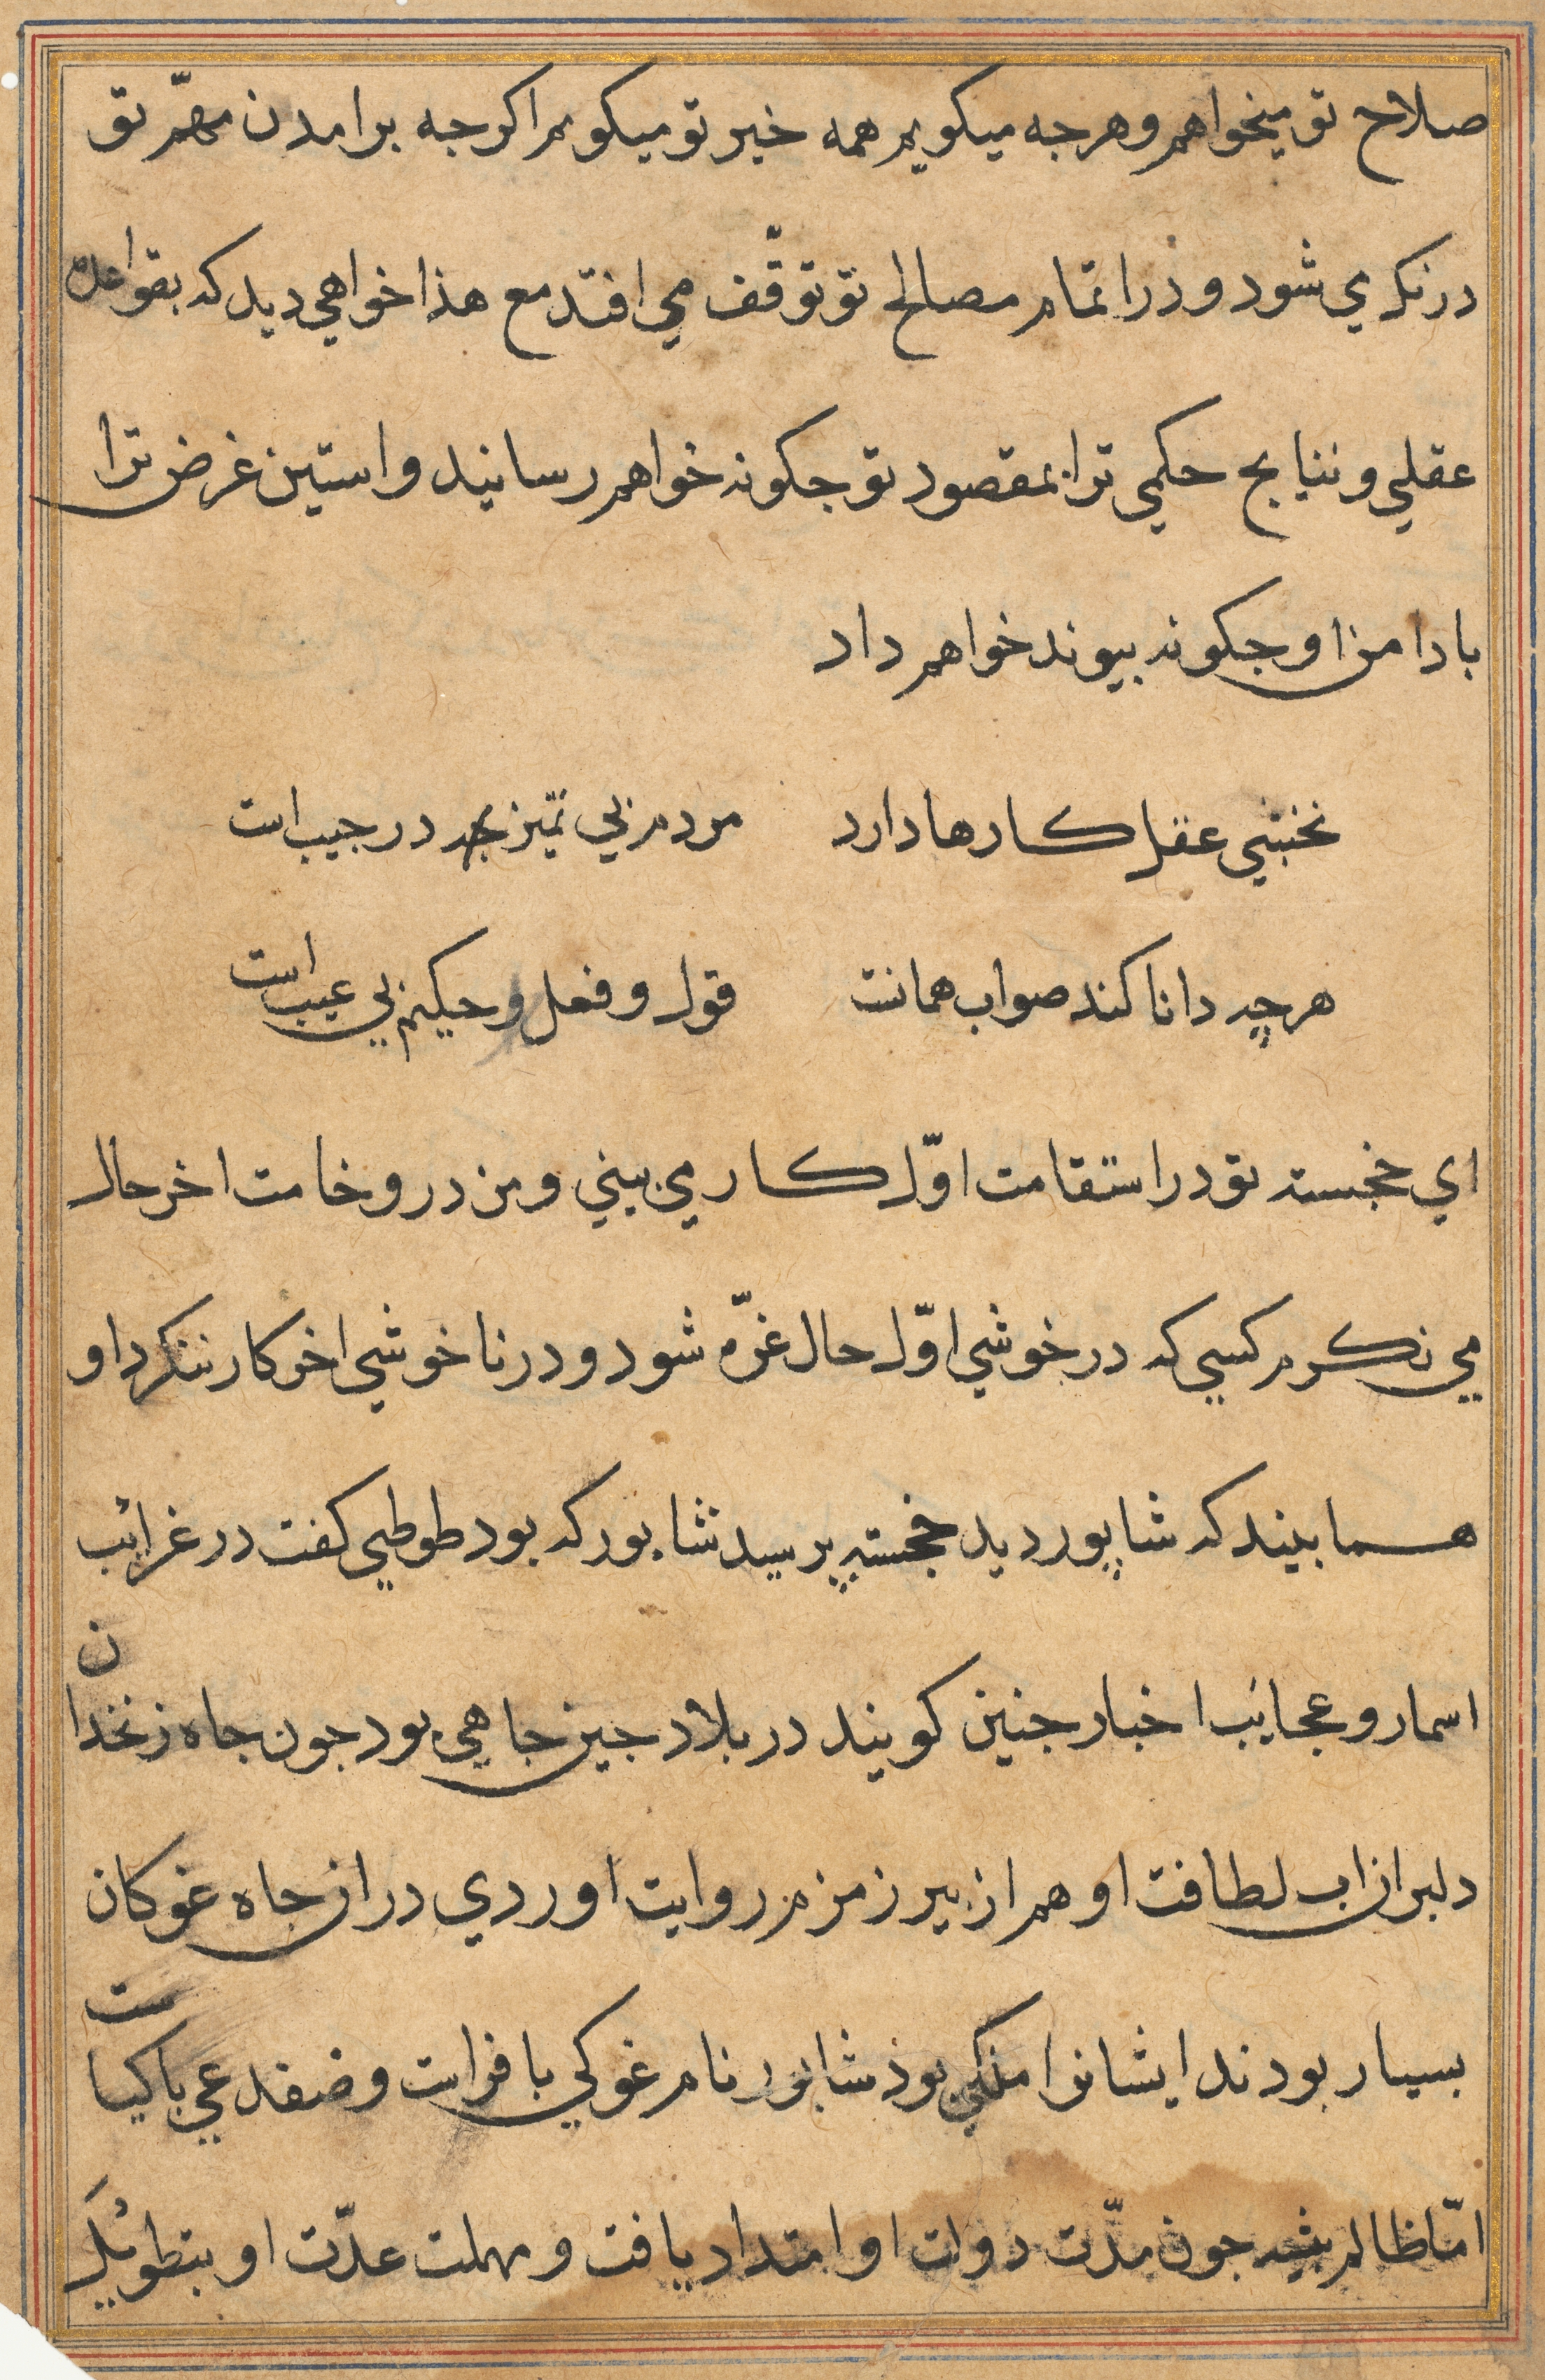 صلاح تو میخواهم وهرجه میکویم همه خیر تو میکویم اکرجه برامدن مهمّ تو
درنکی می شود و در اتمام مصالح تو توقّف می افتد مع هذا خواهی دید که بقواعد
عقلی و نتایج حکمی ترا بمقصود تو جکونه خواهم رسانید و استین غرض ترا
با دامن او جکونه بیوند خواهم داد
نخشبی عقل کارها دارد مردم بی تمیز جه در جیب است
هرچه دانا کند صواب همانست قول و فعل و حکیم بی عیب است
ای خجسته تو در استقامت اوّل کار می بینی و من در وخامت اخر حال
می نکرم کسی که در خوشی اوّل حال غرّه شود و در ناخوشی اخر کار ننکرد او
هما بیند که شاپور دید خجسته پرسید شابور که بود طوطی کفت در غرائب
اسمار و عجائب اخبار جنین کویند در بلاد جین جاهی بود جون جاه زنخدان
دلبران اب لطافت او هم از بیر زمزم روایت اوردی در ان جاه غوکان
بسیار بودند ایشانرا ملکی بوذ شابور نام غوکی با فراست و ضفدعی با کیاست
امّا ظالم بیشه جون مدّت دولت او امتداد یافت و مهلت عدّت او بتطویل